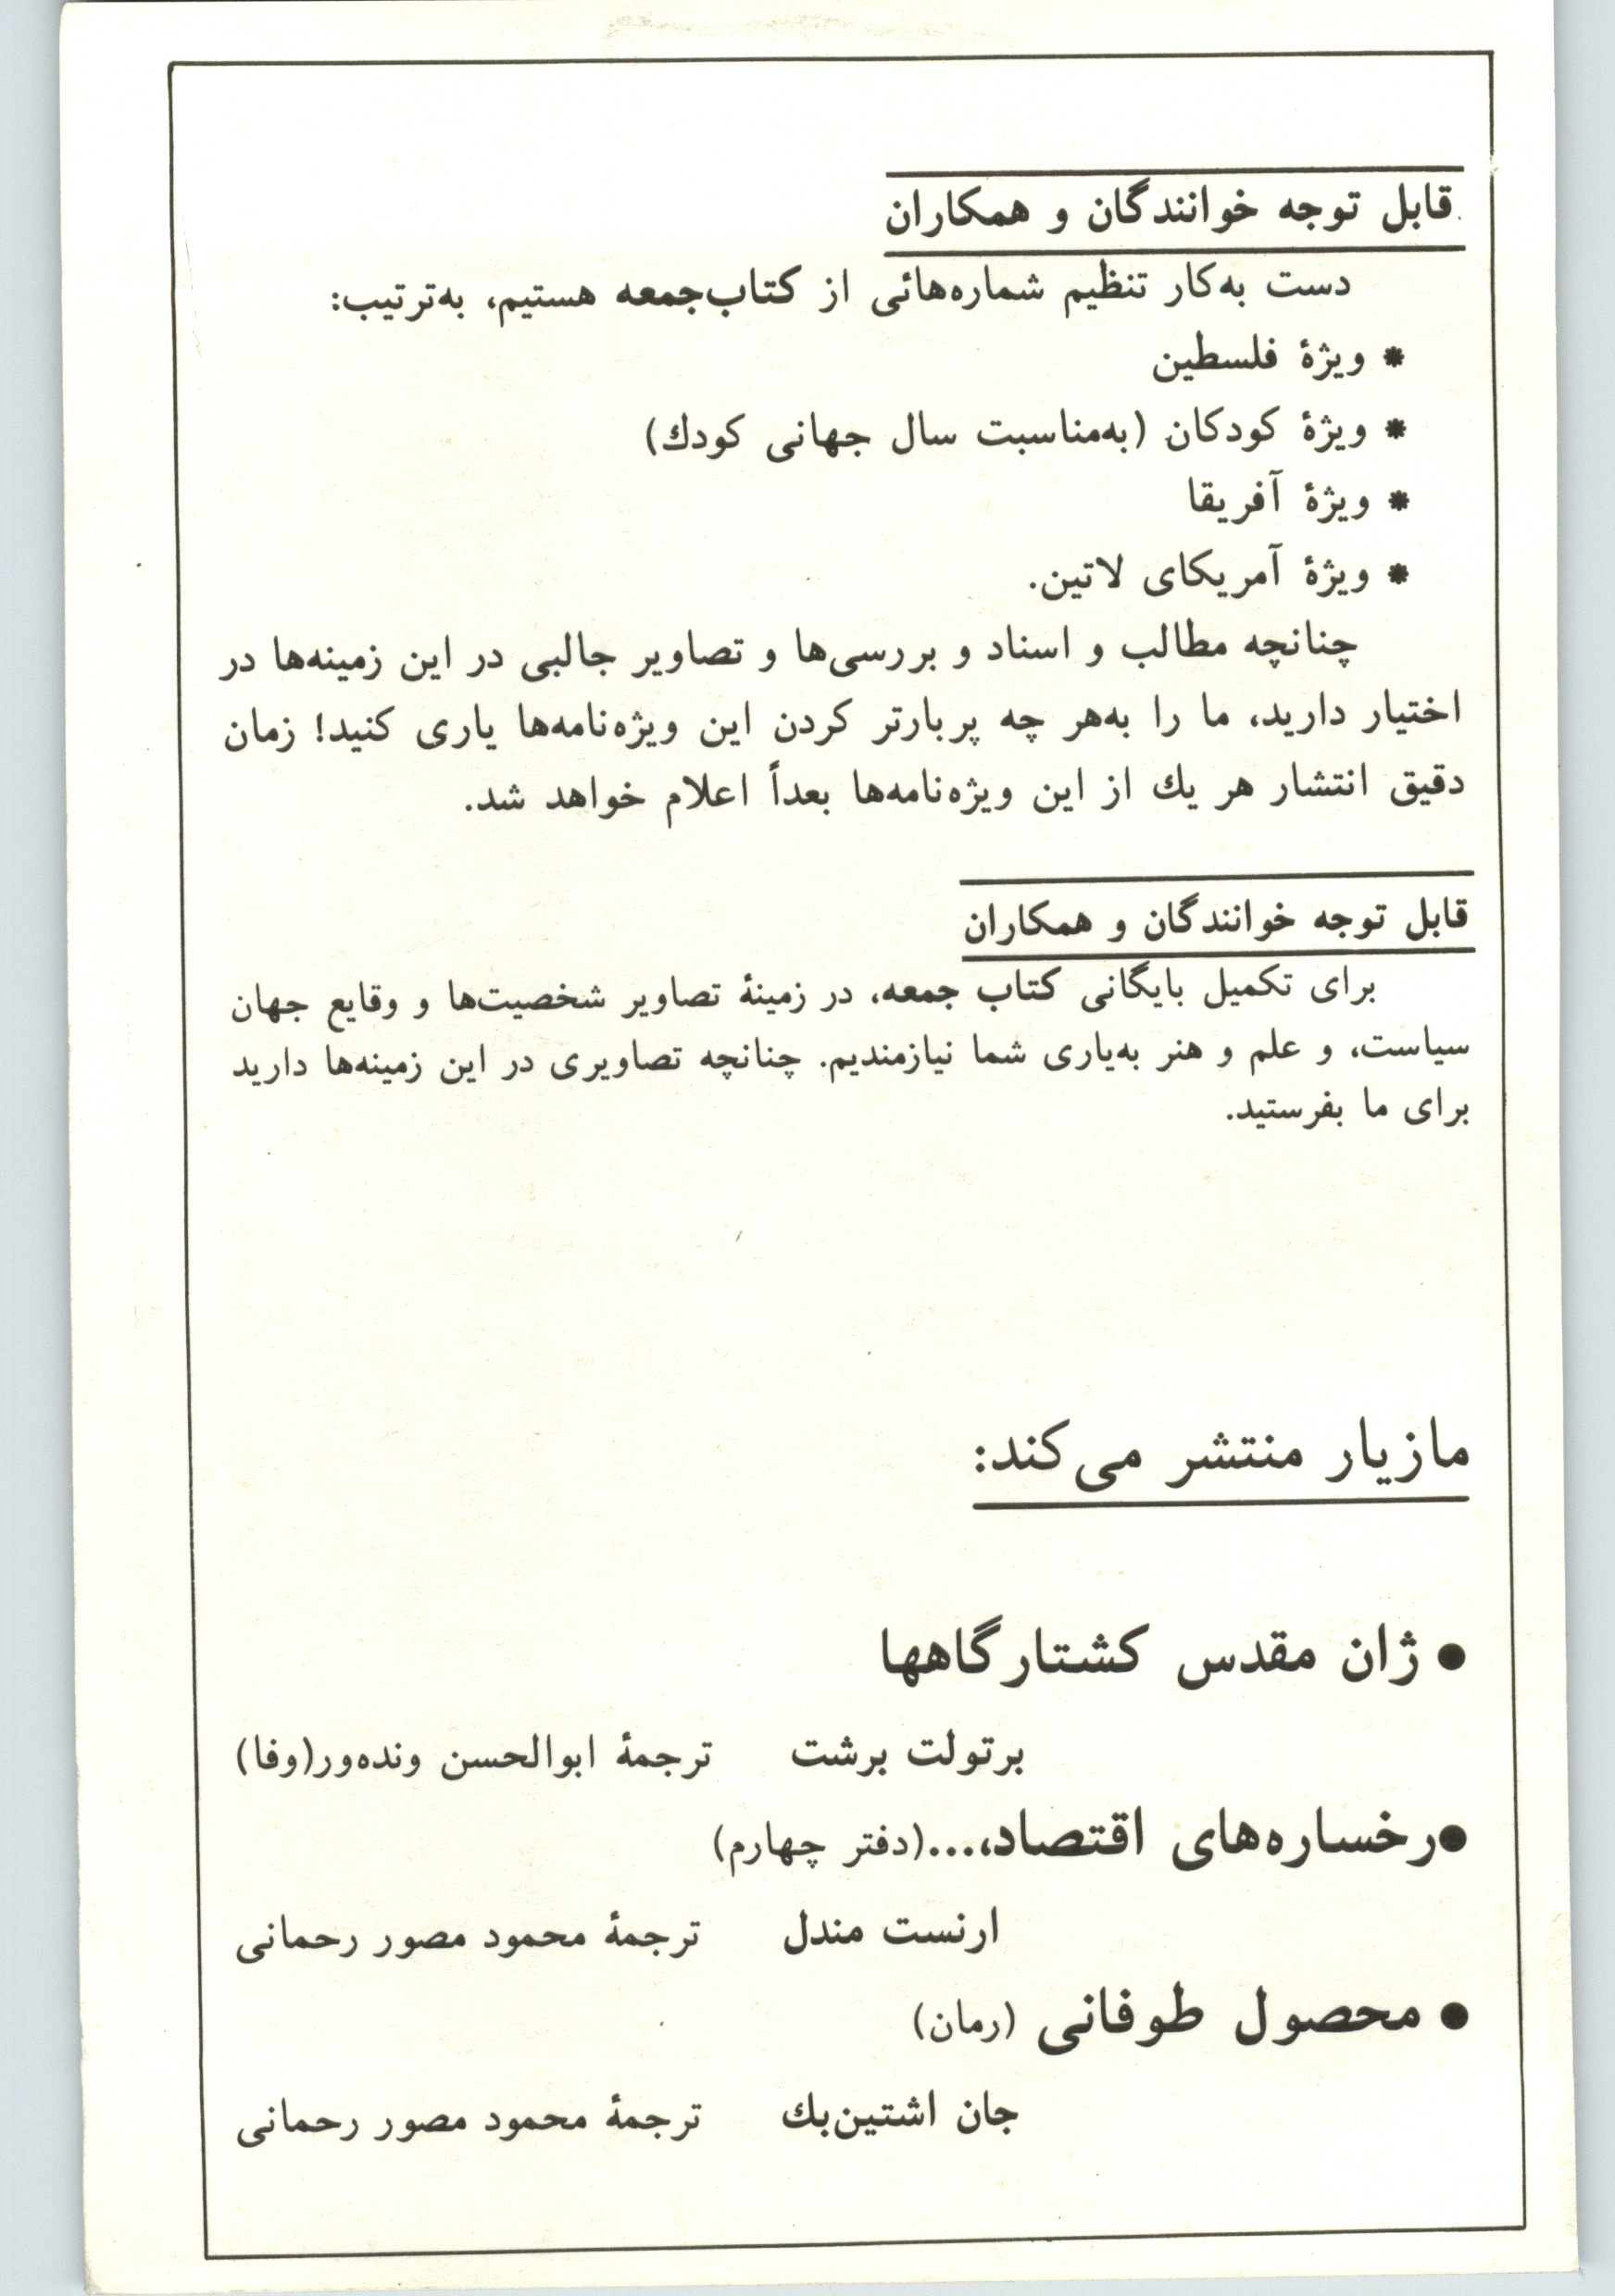 قابل توجه خوانندگان و همکاران
دست به‌کار تنظیم شماره‌هائی از کتاب‌جمعه هستیم، به‌ترتیب:
* ویژهٔ فلسطین
* ویژهٔ کودکان (به‌مناسبت سال جهانی کودك)
* ویژهٔ آفریقا
* ویژهٔ آمریکای لاتین.
چنانچه مطالب و اسناد و بررسی‌ها و تصاویر جالبی در این زمینه‌ها در
اختیار دارید، ما را به‌هر چه پربارتر کردن این ویژه‌نامه‌ها یاری کنید! زمان
دقیق انتشار هر یك از این ویژه‌نامه‌ها بعداً اعلام خواهد شد.
قابل توجه خوانندگان و همکاران
برای تکمیل بایگانی کتاب جمعه، در زمینهٔ تصاویر شخصیت‌ها و وقایع جهان
سیاست، و علم و هنر به‌یاری شما نیازمندیم. چنانچه تصاویری در این زمینه‌ها دارید
برای ما بفرستید.
مازیار منتشر می‌کند:
● ژان مقدس کشتارگاهها
برتولت برشت ترجمهٔ ابوالحسن ونده‌ور(وفا)
●رخساره‌های اقتصاد،...(دفتر چهارم)
ارنست مندل ترجمهٔ محمود مصور رحمانی
● محصول طوفانی (رمان)
جان اشتین‌بك ترجمهٔ محمود مصور رحمانی